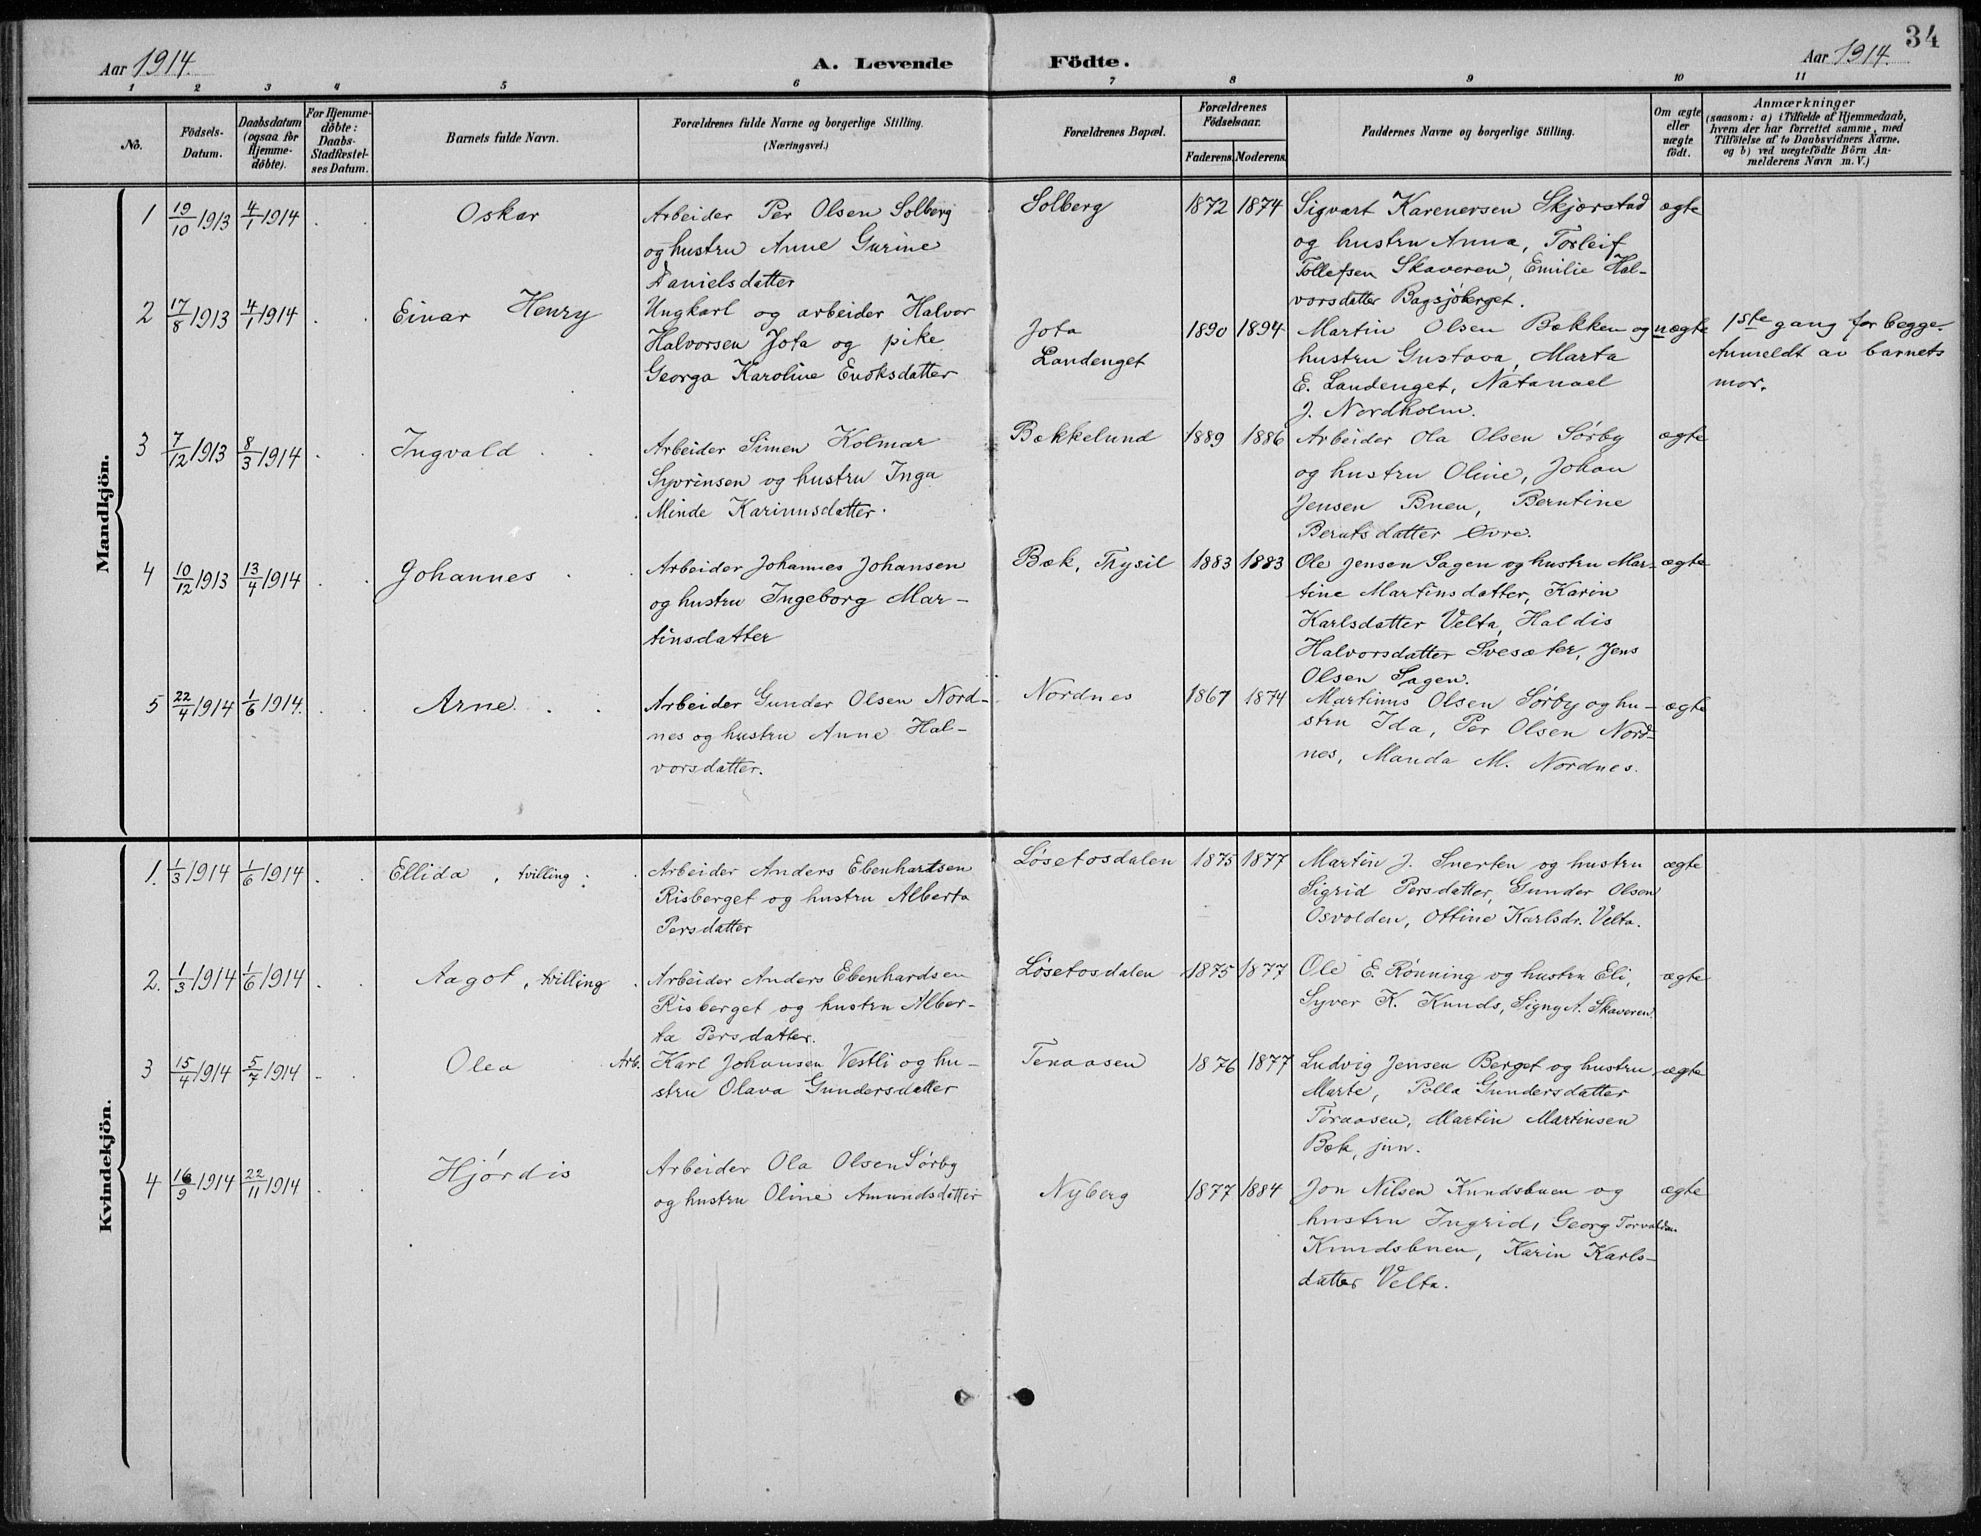 34
Aar 1914. A. Levende Födte. Aar 1914.
1 2 3 4 5 6 7 8 9 10 11
No.
Födsels-
Datum.
Daabsdatum
(ogsaa for
Hjemme-
döbte).
For Hjemme-
döbte:
Daabs-
Stadfæstel-
ses Datum.
Barnets fulde Navn.
Forældrenes fulde Navne og borgerlige Stilling.
(Næringsvei.)
Forældrenes Bopæl.
Forældrenes
Födselsaar.
Faderens. Moderens.
Faddernes Navne og borgerlige Stilling.
Om ægte
eller
uægte
født.
Anmærkninger
(saasom: a) i Tilfælde af Hjemmedaab,
hvem der har forrettet samme, med
Tilföielse af to Daabsvidners Navne.
og b) ved uægtefödte Börn An-
melderens Navn m. V.)
Mandkjön.
1 19/10 1913 4/1 1914 Oskar
Arbeider Per Olsen Solberg
og hustru Anne Gurine
Danielsdatter
Solberg 1872 1874
Sigvart Karenersen Skjærstad
og hustru Anna, Torleif
Tollefsen Skaveren, Emilie Hal-
vorsdatter Bagsjöberget.
ægte
2 17/8 1913 4/1 1914 Einar Henry
Ungkarl og arbeider Halvor
Halvorsen Jota og pike
Georga Karoline Enoksdatter
Jota
Landenget
1890 1894
Martin Olsen Bækken og
hustru Gustava, Marta
E. Landenget, Natanael
J. Nordholm.
uægte
1ste gang for begge.
Anmeldt av barnets
mor.
3 7/12 1913 8/3 1914 Ingvald
Arbeider Simen Kolmar
Syvrinsen og hustru Inga
Minde Karinusdatter.
Bækkelund 1889 1886
Arbeider Ola Olsen Sørby
og hustru Oline, Johan
Jensen Buen, Berntine
Berntsdatter Øvre.
ægte
4 10/12 1913 13/4 1914 Johannes
Arbeider Johannes Johansen
og hustru Ingeborg Mar-
tinsdatter
Bæk, Trysil 1883 1883
Ole Jensen Sagen og hustru Mar-
tine Martinsdatter, Karin
Karlsdatter Velta, Haldis
Halvorsdatter Svesæter, Jens
Olsen Sagen.
ægte
5 22/4 1914 1/6 1914. Arne
Arbeider Gunder Olsen Nord-
nes og hustru Anne Hal-
vorsdatter.
Nordnes 1867 1874
Martinus Olsen Sørby og hu-
stru Ida, Per Olsen Nord-
nes, Manda M. Nordnes.
ægte
Kvindekjön.
1. 1/3 1914 1/6 1914 Ellida, tvilling
Arbeider Anders Ebenhardtsen
Risberget og hustru Alberta
Persdatter
Løsetosdalen 1875 1877
Martin J. Snerten og hustru
Sigrid Persdatter, Gunder Olsen
Osvolden, Ottine Karlsdr. Velta.
ægte
2. 1/3 1914 1/6 1914 Aagot, tvilling
Arbeider Anders Ebenhardsen
Risberget og hustru Alber-
ta Persdatter.
Løsetosdalen 1875 1877
Ole E. Rønning og hustru Eli,
Syver K. Knuds, Signy A. Skaveren.
ægte
3 15/4 1914 5/7 1914 Olea
Arb. Karl Johansen Vestli og hu-
stru Olava Gundersdatter
Tenaasen 1876 1877
Ludvig Jensen Berget og hustru
Marte, Polla Gundersdatter
Tøraasen, Martin Martinsen
Bæk, jun.
ægte
4 16/9 1914 22/11 1914 Hjørdis
Arbeider Ola Olsen Sørby
og hustru Oline Amundsdatter
Nyberg 1877 1884
Jon Nilsen Knudsbuen og
hustru Ingrid, Georg Torvaldsen
Knudsbuen, Karin Karls-
datter Velta.
ægte